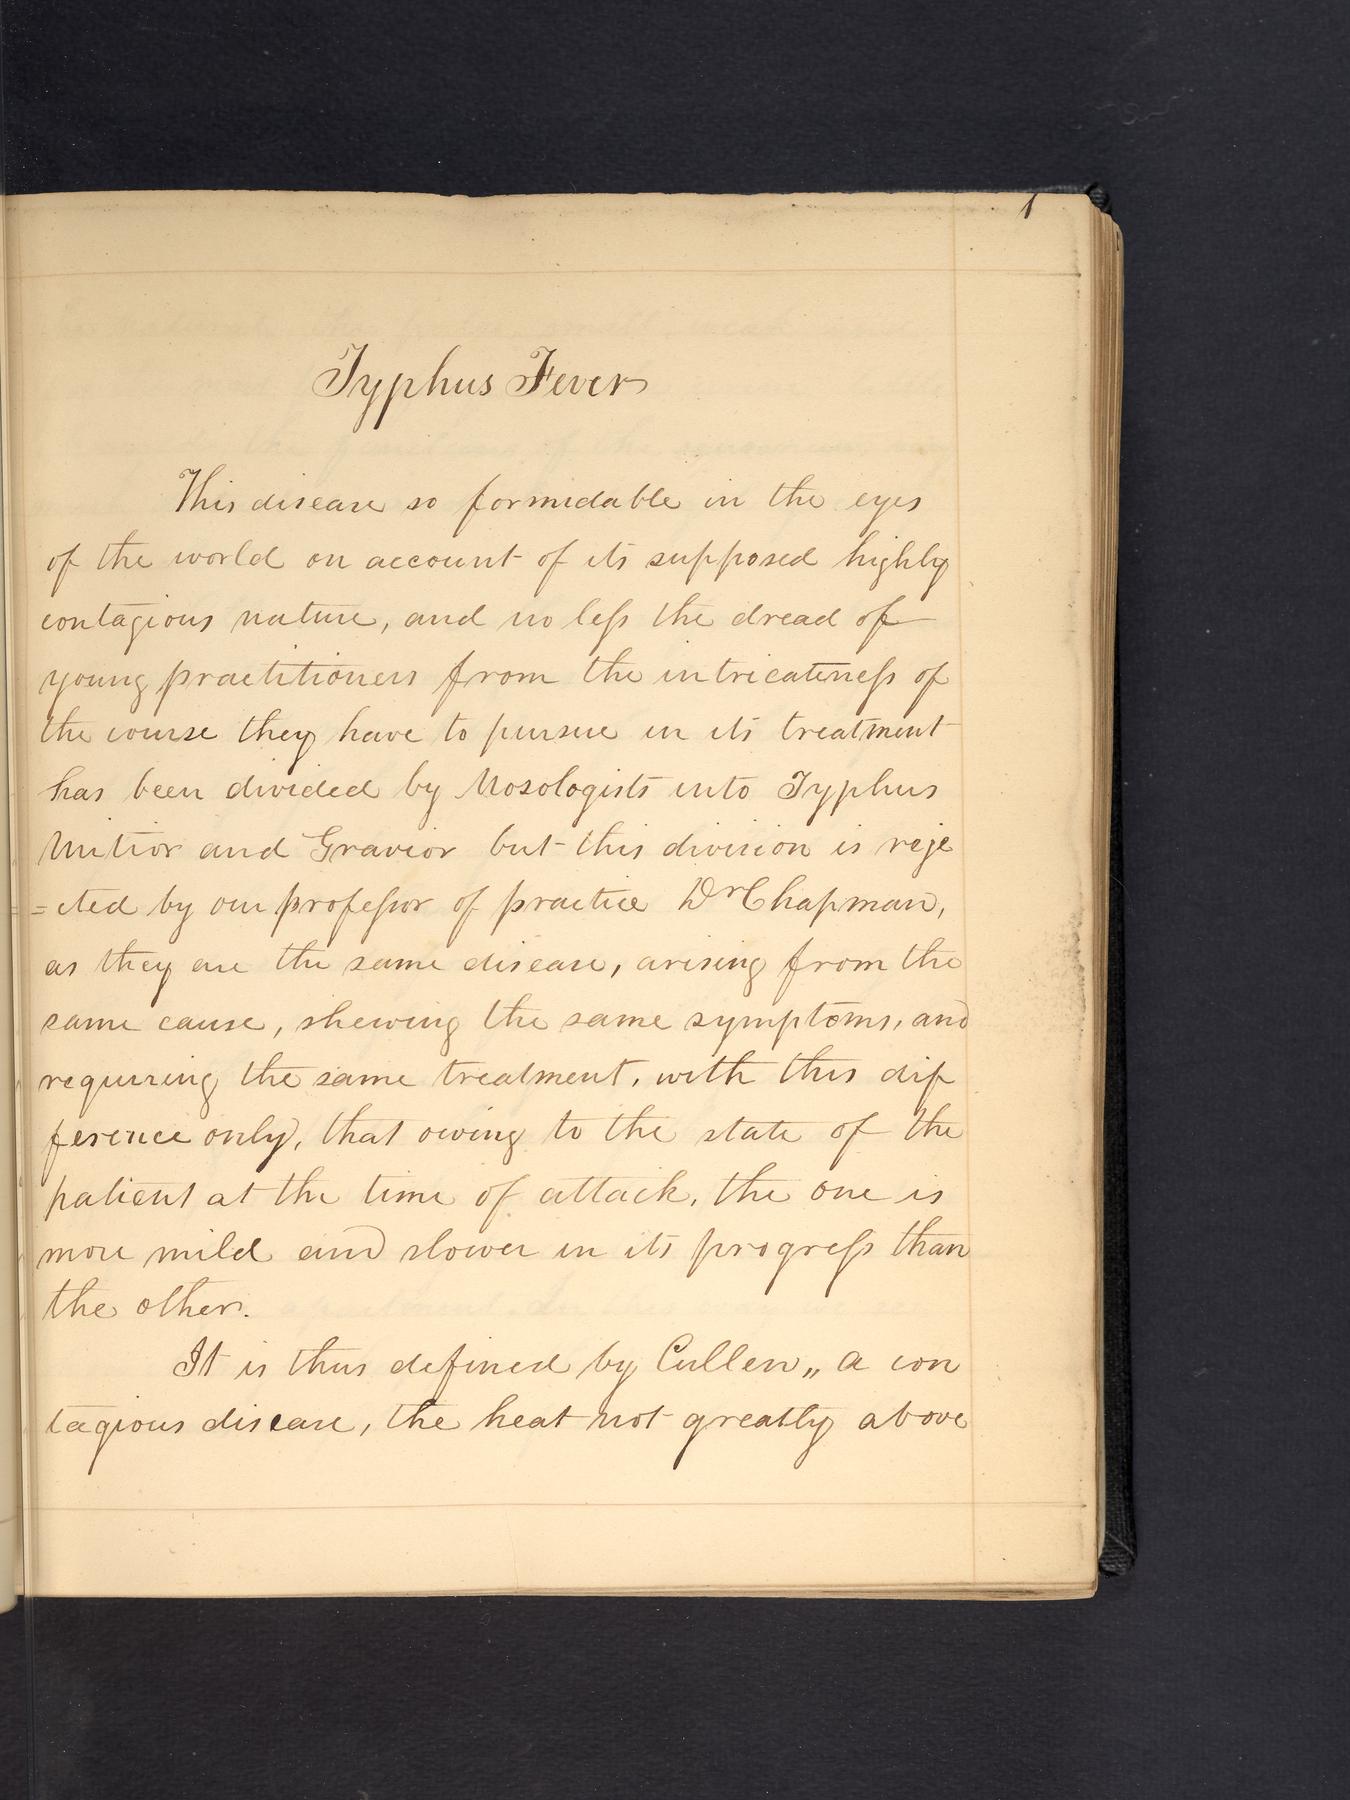 1
Typhus Fever
This disease so formidable in the eyes
of the world on account of its supposed highly
contagious nature, and no less the dread of
young practitioners from the intricateness of
the course they have to pursue in its treatment
has been divided by Nosologists into Typhus
Mitior and Gravior but this division is reje
=cted by our professor of practice Dr Chapman,
as they are the same disease, arising from the
same cause, shewing the same symptoms, and
requiring the same treatment, with this dif
ference only, that owing to the state of the
patient at the time of attack, the one is
more mild and slower in its progress than
the other.
It is thus defined by Cullen „ a con
tagious disease, the heat not greatly above